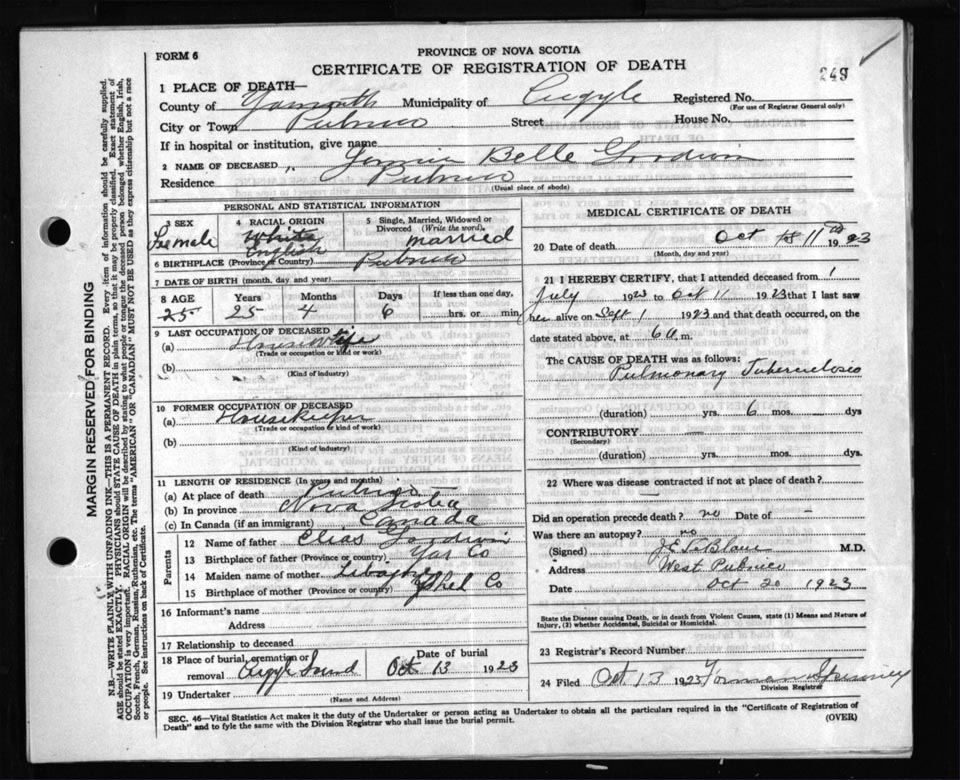 FORM 6
PROVINCE OF NOVA SCOTIA
CERTIFICATE OF REGISTRATION OF DEATH
249
1 PLACE OF DEATH—
County of Yarmouth Municipality of Argyle Registered No.
(For use of Registrar General only)
City or Town Pubnico Street House No.
If in hospital or institution, give name
2 NAME OF DECEASED „ Belle Goodwin
Residence Pubnico
(Usual place of abode)
PERSONAL AND STATISTICAL INFORMATION
3 SEX Female
4 RACIAL ORIGIN White English
5 Single, Married, Widowed or Divorced (Write the word). married
6 BIRTHPLACE (Province or Country) Pubnico
7 DATE OF BIRTH (month, day and year)
8 AGE Years Months Days If less than one day,
25 25 4 6 hrs. or min
9 LAST OCCUPATION OF DECEASED
(a) Housewife
(Trade or occupation or kind or work)
(b)
(Kind of industry)
10 FORMER OCCUPATION OF DECEASED
(a) Housekeeper
(Trade or occupation or kind of work)
(b)
(Kind of industry)
11 LENGTH OF RESIDENCE (In years and months)
(a) At place of death Pubnico
(b) In province Nova Scotia
(c) In Canada (if an immigrant) Canada
Parents
12 Name of father Elias Goodwin
13 Birthplace of father (Province or country) Yar Co
14 Maiden name of mother
15 Birthplace of mother (Province or country) Shel Co
16 Informant's name
Address
17 Relationship to deceased
18 Place of burial, cremation or removal Argyle Sound Date of burial Oct 13 1923
19 Undertaker
(Name and Address)
MEDICAL CERTIFICATE OF DEATH
20 Date of death Oct 11th 1923
(Month, day and year)
21 I HEREBY CERTIFY, that I attended deceased from 1
July 1923 to Oct 11 1923 that I last saw
her alive on Sept 1 1923 and that death occurred, on
date stated above, at 6 a. m.
The CAUSE OF DEATH was as follows:
Pulmonary Tuberculosis
(duration) yrs. 6 mos. dys
CONTRIBUTORY —
(Secondary)
(duration) yrs. mos. dys.
22 Where was disease contracted if not at place of death?
—
Did an operation precede death? no Date of —
Was there an autopsy? no
(Signed) J E LeBlanc M.D.
Address West Pubnico
Date Oct 20 1923
State the Disease causing Death, or in death from Violent Causes, state (1) Means and Nature of
Injury, (2) whether Accidental, Suicidal or Homicidal.
23 Registrar's Record Number
24 Filed Oct 13 1923 Forman Spinney
Division Registrar
SEC. 46—Vital Statistics Act makes it the duty of the Undertaker or person acting as Undertaker to obtain all the particulars required in the "Certificate of Registration of
Death" and to fyle the same with the Division Registrar who shall issue the burial permit.
(OVER)
MARGIN RESERVED FOR BINDING
N.B.—WRITE PLAINLY WITH UNFADING INK—THIS IS A PERMANENT RECORD. Every item of information should be carefully supplied.
AGE should be stated EXACTLY. PHYSICIANS should STATE CAUSE OF DEATH in plain terms, so that it may be properly classified. Exact statement of
OCCUPATION is very important. RACIAL ORIGIN will be described by stating to what people or tongue the deceased person belonged whether English, Irish,
Scotch, French, German, Russian, Ruthenian, etc. The terms "AMERICAN" OR "CANADIAN" MUST NOT BE USED as they express citizenship but not a race
or people. See instructions on back of Certificate.